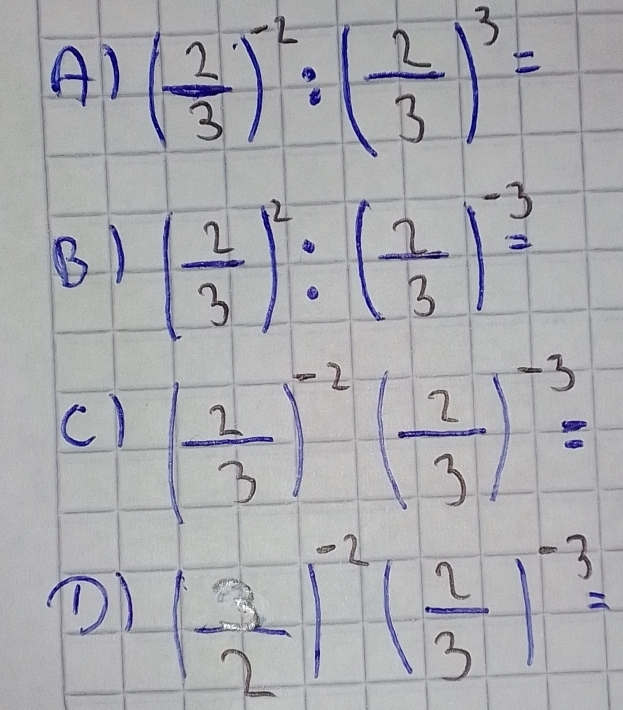 A) (2/3)^-2 : (2/3)^3 =
B) (2/3)^2 : (2/3)^-3 =
C) (2/3)^-2 (2/3)^-3 =
D) (3/2)^-2 (2/3)^-3 =